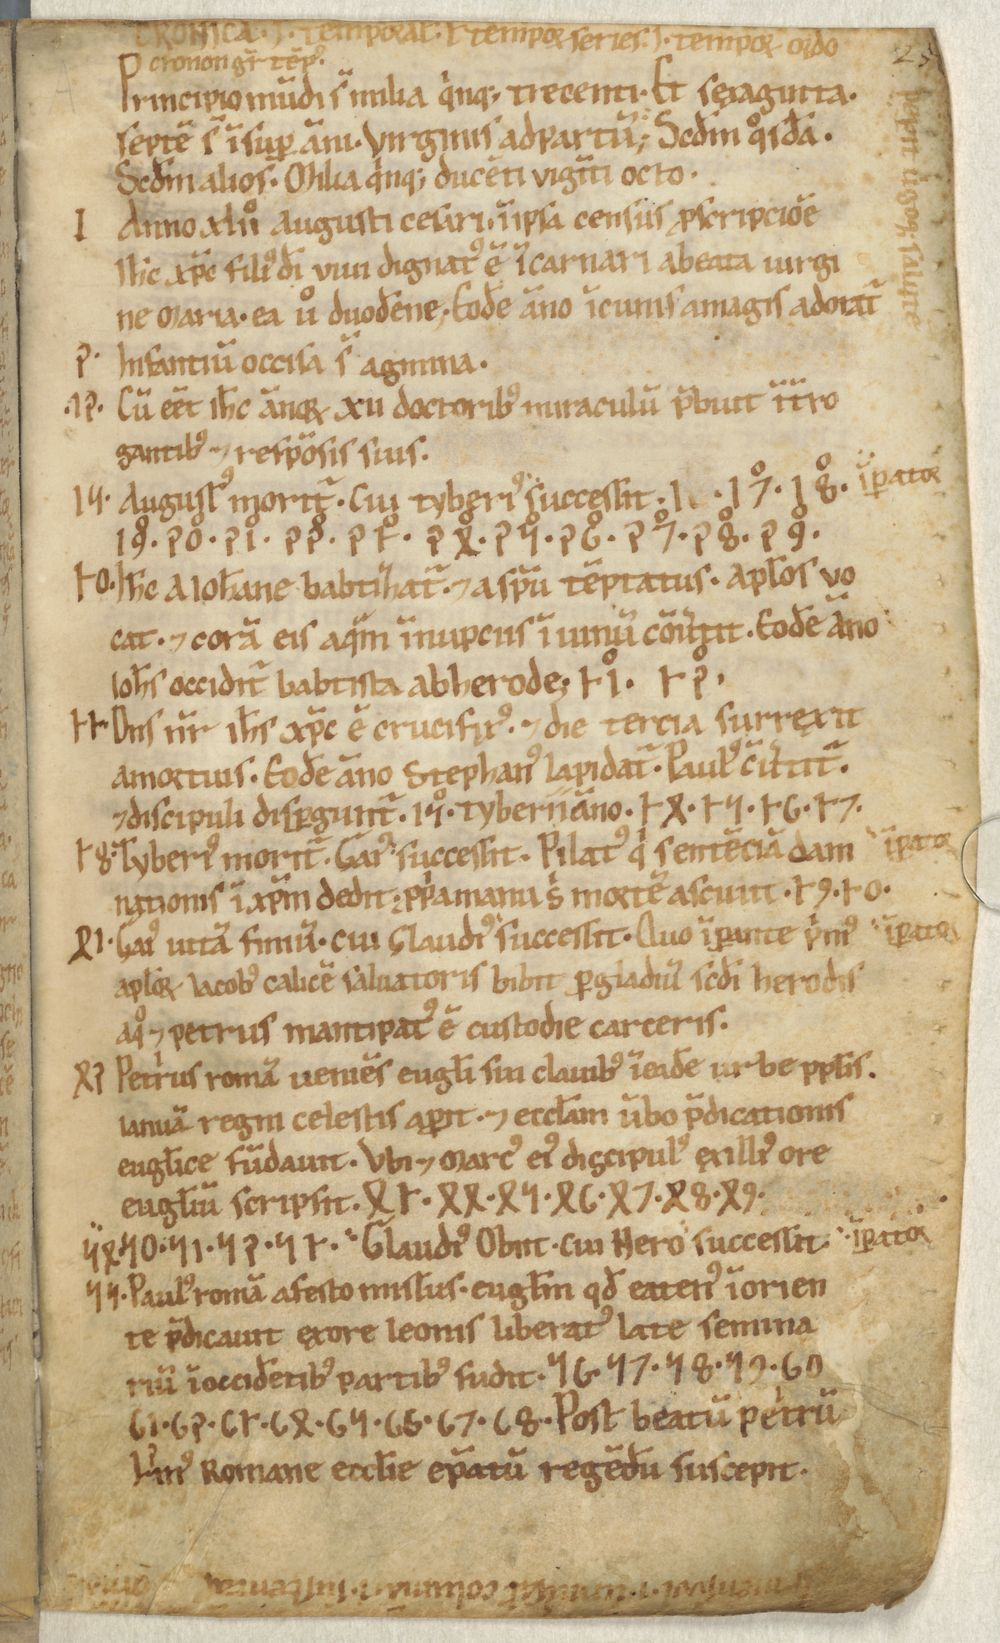 CRONICA .i. temporal. ł tempoꝝ series .i. tempoꝝ ordo
cronon gr̄ tēpꝰ
Principio mūdi s̄ milia qͥnqꝫ trecenti. Et sexaginta.
septē s̄ īsuꝑ āni. Virginis ad partū; Scdm qͦsdā.
Scdm alios. Milia qͥnqꝫ ducēti vigīti octo.
I Anno xlii Augusti cesari. īipsa census ꝓscripciōe
Ihc xp̄c filiꝰ dī vivi dignatꝰ ē īcarnari abeata uirgi
ne Maria. ea uͦ duodene. Eodē āno īcunis amagis adorat᷑
2. Infantiū occisa s̄ agmina.
.12. Cū eēt ih̄c ānoꝝ xii doctoribꝰ miraculū p̄buit īt̄ro
gantibꝰ ⁊ respōsis suis.
15. Augustꝰ morit᷑. Cui tyberiꝰ successit. 17. 18. īpator
19. 20. 21. 22. 23. 24. 25. 26. 27. 28. 29.
30. Ih̄c A Ioh̄ane babtizat᷑. ⁊ a sp̄u tēptatus. Apl̄os vo
cat. ⁊ corā eis aq̄m īnupciis ī uinū cōūtit. Eodē āno
Ioh̄s occidit᷑ babtista ab herode; 31. 32.
33 Dn̄s nr̄ ih̄s xp̄c ē crucifixꝰ. ⁊ die tercia surrexit
amortuis. Eodē āno Stephanꝰ lapidat᷑. Paulꝰ cūtit᷑.
⁊ discipuli disꝑgunt᷑. 15. tyberii āno. 34. 35. 36. 37.
38. Tyberiꝰ morit᷑. Gaiꝰ successit. Pilatꝰ qͥ sentēciā dam īpator
nationis ī xp̄m dedit; ꝓp̄a manu sͥ mortē asciuit. 39. 30.
41. Gaiꝰ uitā finiuit. cui Glaudiꝰ successit. Quo īpante pͥmꝰ īpator
apl̄oꝝ Iacobꝰ calicē saluatoris bibit ꝑ gladiū scdi herodis
Aqͦ ⁊ petrus mancipatꝰ ē custodie carceris.
42 Petrus romā ueniēs eugl̄i sui clauibꝰ ī eadē urbe ppl̄is.
ianuā regni celestis aꝑit. ⁊ eccl̄am ūbo p̄dicationis
eugl̄ice fūdauit. Vbi ⁊ Marcꝰ eiꝰ discipulꝰ ex illiꝰ ore
eugl̄iū scripsit. 43. 44. 45. 46. 47. 48. 49.
54 50. 51. 52. 53. Glaudiꝰ Obiit. cui Nero successit. īpator
55. Paulꝰ romā afesto missus. eugl̄m qd̄ eatenꝰ ī orien
te p̄dicauit exore leonis liberatꝰ late semina
riū ī occidētibꝰ partibꝰ fudit. 56. 57. 58. 59. 60
61. 62. 63. 64. 65. 66. 67. 68. Post beatū petrū
Linꝰ Romane eccl̄ie ep̄atū regēdū suscepit.